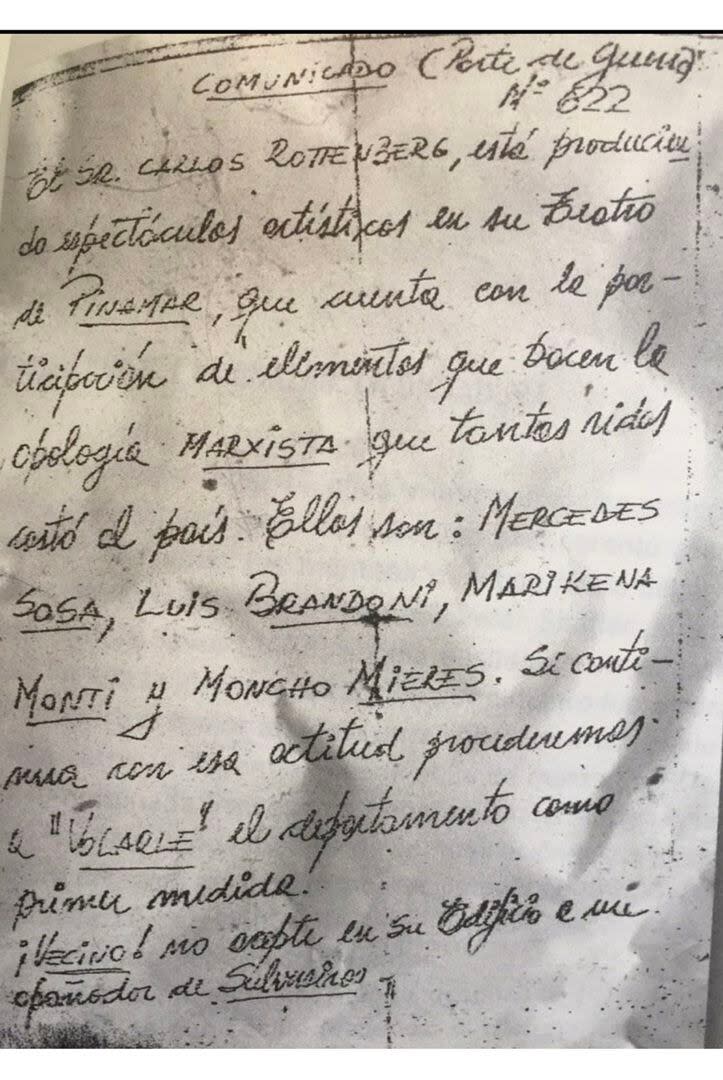 COMUNICADO (Parte de Guerra)
Nº 622
El SR. CARLOS ROTTENBERG, está producien
do espectáculos artísticos en su Teatro
de PINAMAR, que cuenta con la par-
ticipación de elementos que hacen la
apología MARXISTA que tantas vidas
costó al país. Ellos son: MERCEDES
SOSA, LUIS BRANDONI, MARIKENA
MONTI y MONCHO MIERES. Si conti-
nua con esa actitud procederemos
a "VOLARLE" el departamento como
primer medida!
¡VECINO! no acepte en su Edificio a un
apañador de Subversivos